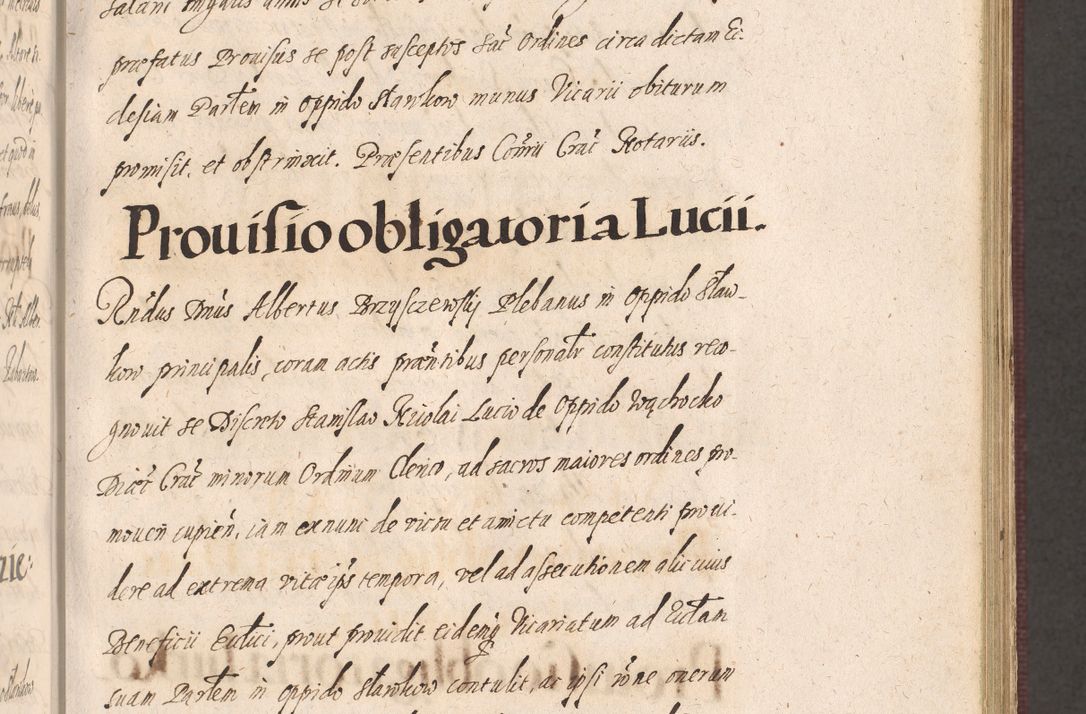 præfatus Prouisus se post susceptos Sac̃ Ordines circa dictam Ec-
clesiam Parłem in Oppido Sławkow munus Vicarii obiturum
promisit, et obstrinxit. Præsentibus Coñrii Crac̃ Notariis.
Prouisio obligatoria Lucii.
Rñdus Dñus Albertus Brzysczewsky Plebanus in Oppido Sław-
kow principalis, coram actis præñtibus personałr constitutus reco-
gnouit se Discreto Stanislao Nicolai Lucio de Oppido Wąchocko
Diæc̃ Crac̃ minorum Ordinum Clerico, ad sacros maiores ordines pro-
moueñ cupieñ, iam ex nunc de victu et amictu competenti proui-
dere ad extrema vitæ ips̃ tempora, vel ad assecutionem alicuius
Beneficii Ecłtici, prout prouidit eidemq̃ Vicariatum ad Ecłam
suam Parłem in oppido Sławkow contulit, ac ipsi rõne onerum